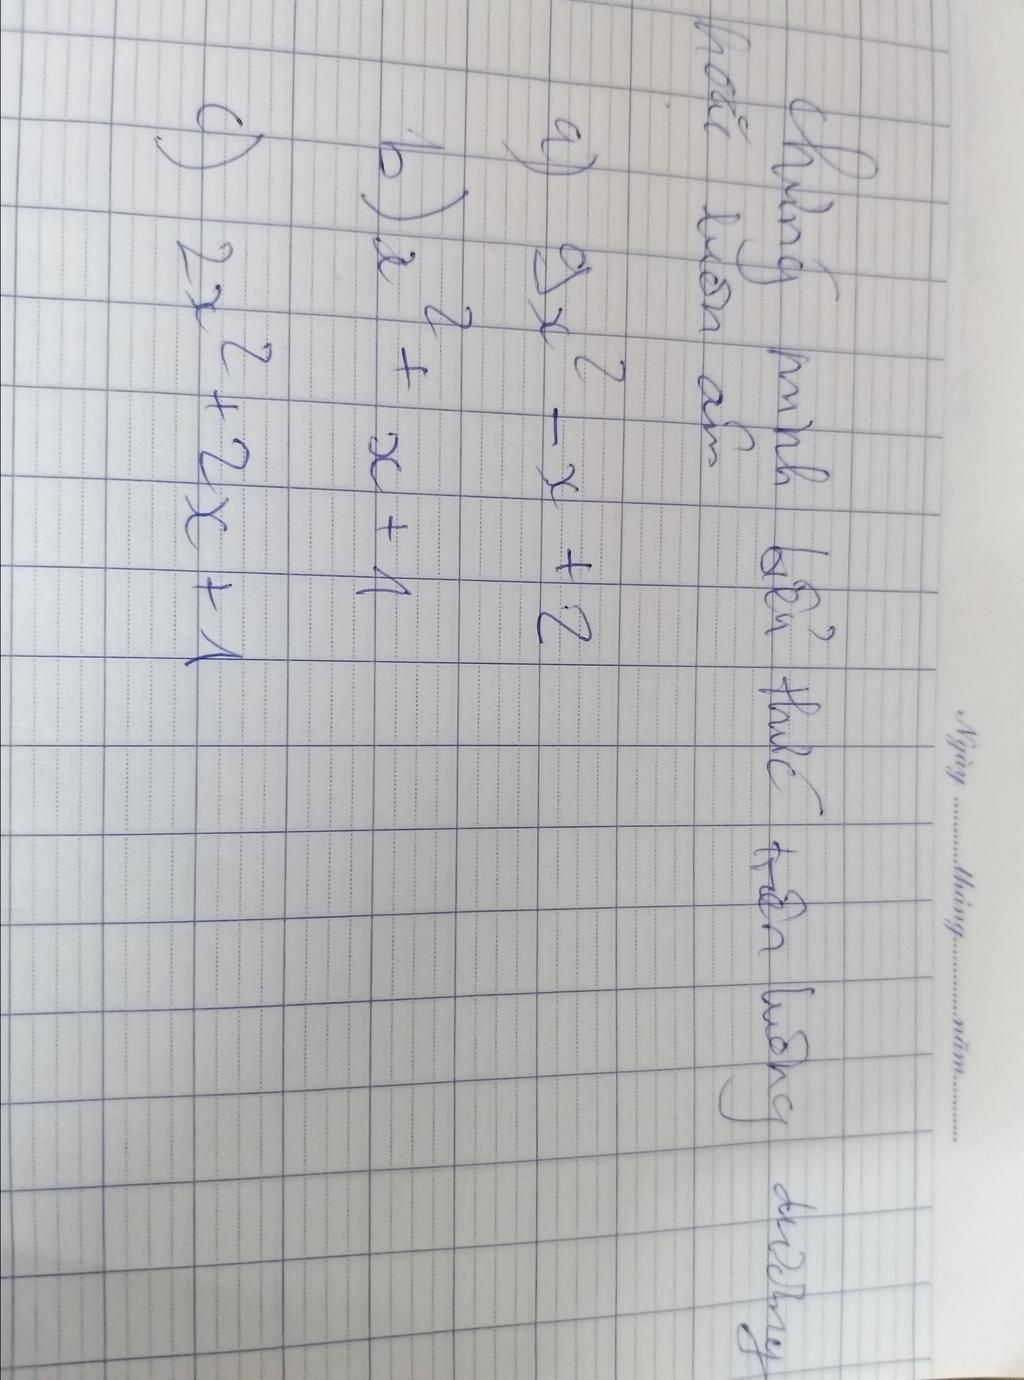 Ngày ............tháng............năm............
Chứng minh biểu thức trên luông dương
hoặc luôn âm
a) 9x² - x + 2
b) x² + x + 1
c) 2x² + 2x + 1